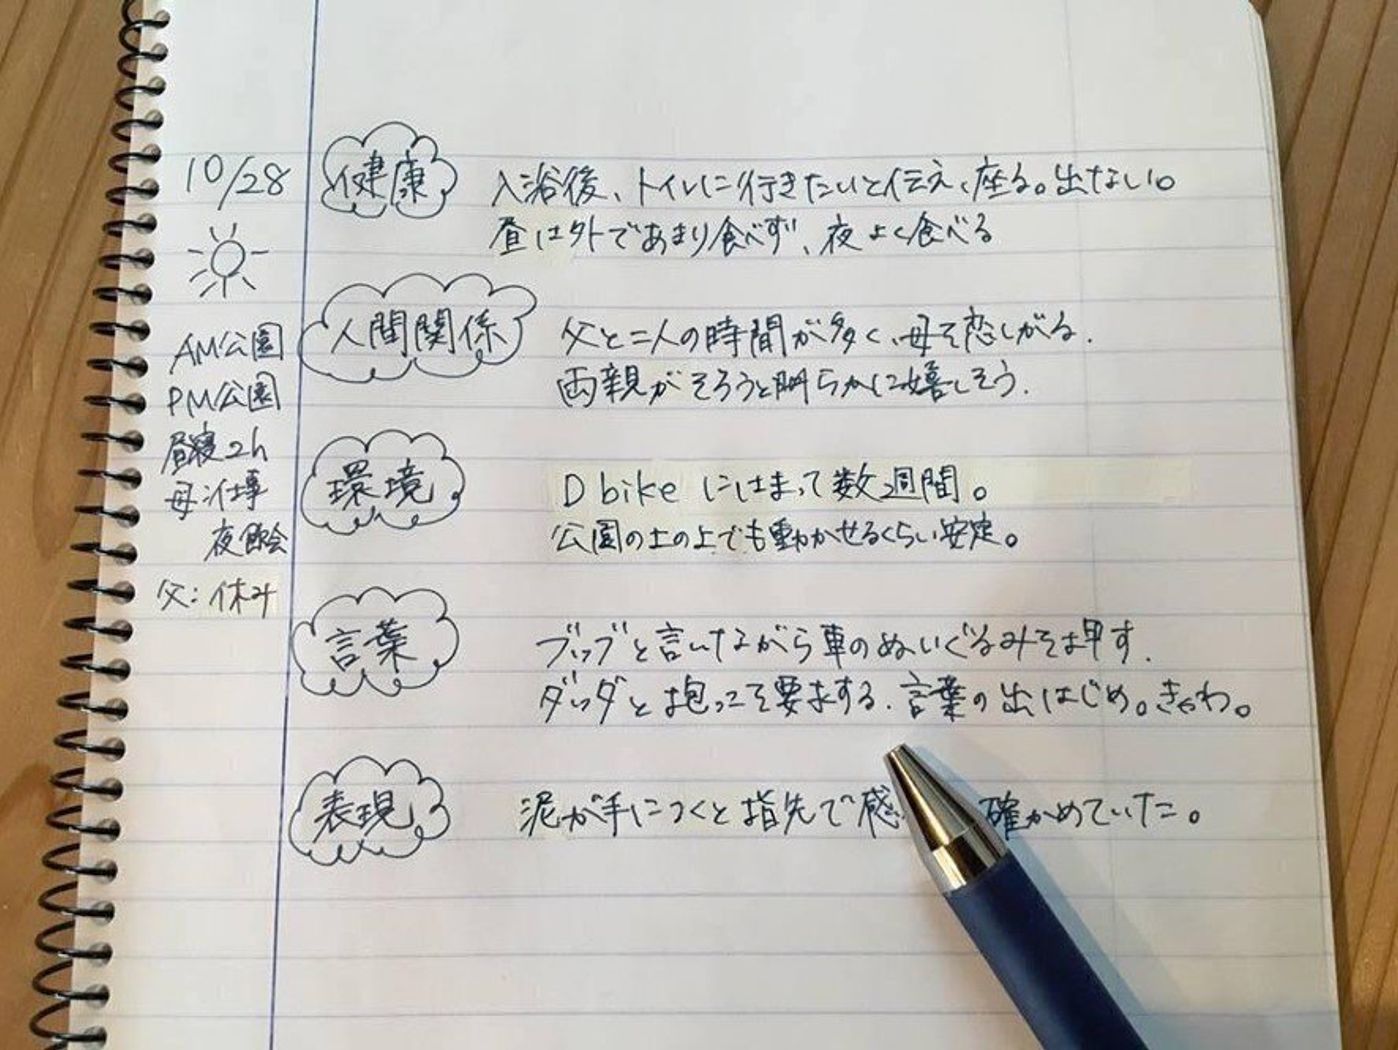 10/28
AM公園
PM公園
昼寝2h
母:仕事
夜飲会
父:休み
健康
入浴後、トイレに行きたいと伝え、座る。出ない。
昼は外であまり食べず、夜よく食べる
人間関係
父と二人の時間が多く、母を恋しがる.
両親がそろうと明らかに嬉しそう.
環境
D bike にはまって数週間。
公園の土の上でも動かせるくらい安定。
言葉
ブッブと言いながら車のぬいぐるみを押す.
ダッダと抱っこを要求する.言葉の出はじめ。きゃわ。
表現
泥が手につくと指先で感 確かめていた。